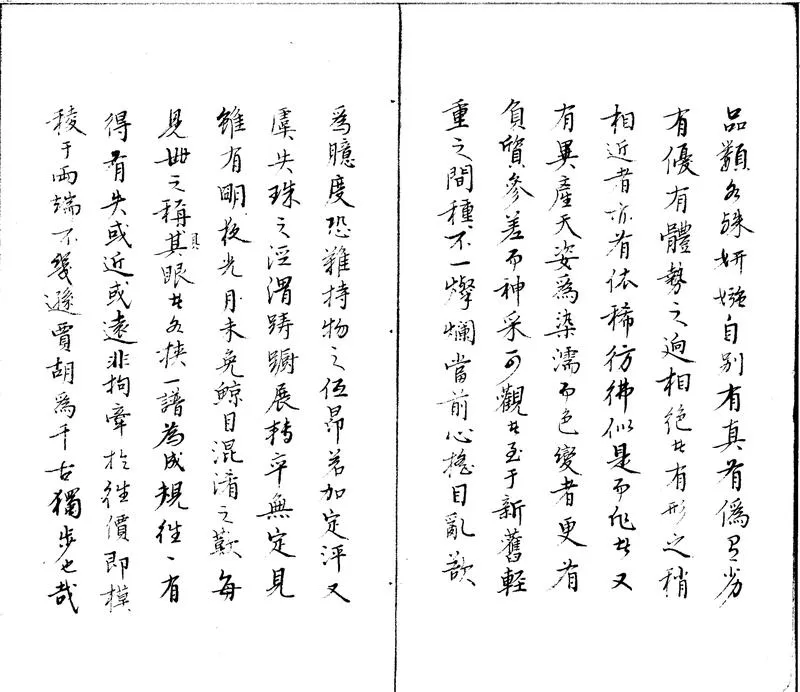 品類各殊妍媸自別有真有僞有劣
有優有體勢之逈相絕者有形之稍
相近者亦有依稀彷彿似是而非者又
有異產天姿爲染濡而色變者更有
負質參差而神采可觀者至于新舊輕
重之間種種不一燦爛當前心搖目亂欲
爲臆度恐難持物之低昂若加定評又
虞失珠之涇渭躊躕展轉卒無定見
雖有明夜光月未免鯨目混淆之歎每
見世之稱具其眼者各挾一譜為成規往往有
得有失或近或遠非拘牽於徃價即模
稜于兩端不幾遜賈胡爲千古獨步也哉